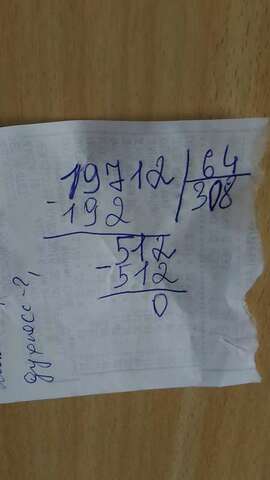 19712 | 64
- 192 | 308
512
- 512
0